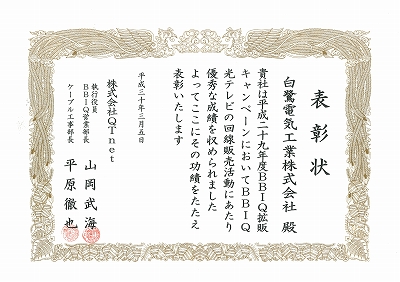 表彰状
白鷺電気工業株式会社 殿
貴社は平成二十九年度BBIQ拡販
キャンペーンにおいてBBIQ
光テレビの回線販売活動にあたり
優秀な成績を収められました
よってここにその功績をたたえ
表彰いたします
平成三十年三月五日
株式会社QTnet
執行役員
BBIQ営業部長 山岡武海
ケーブル工事部長 平原徹也